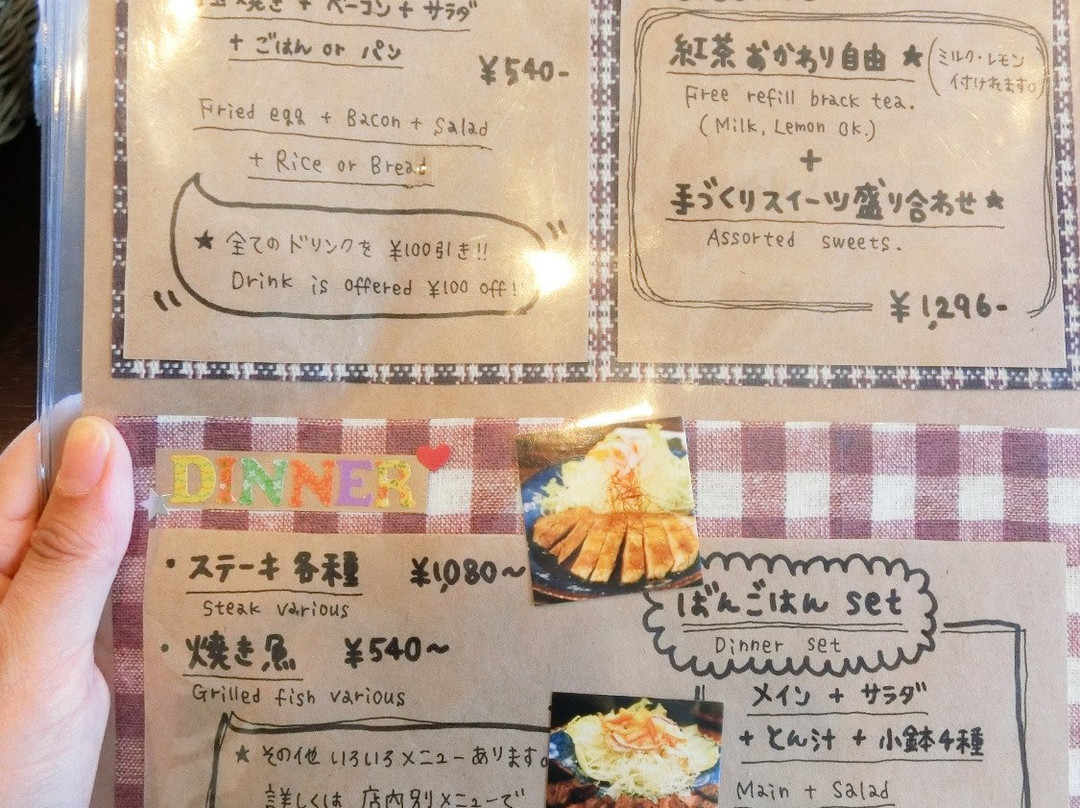 焼き + ベーコン + サラダ
+ ごはん or パン
¥540-
Fried egg + Bacon + Salad
+ Rice or Bread
★ 全てのドリンクを ¥100引き!!
Drink is offered ¥100 off!!
紅茶 おかわり自由 ★ (ミルク・レモン
付けれます。)
Free refill brack tea.
(Milk, Lemon Ok.)
+
手づくりスイーツ盛り合わせ★
Assorted sweets.
¥1,296-
DINNER
・ステーキ各種 ¥1,080~
Steak various
・焼き魚 ¥540~
Grilled fish various
★ その他 いろいろメニューあります。
詳しくは 店内別メニューで
ばんごはん set
Dinner set
メイン + サラダ
+ とん汁 + 小鉢4種
Main + Salad